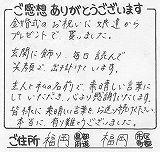 ご感想ありがとうございます
金婚式のお祝いに娘達から
プレゼントで貰いました。
玄関に飾り 毎日読んで
笑顔で出掛けています。
主人と私の名前で、素晴しい言葉に
していただき、心より感謝致します。
皆様に素晴しい言葉をお送り続けて下さい
本当に有り難うございました。
ご住所 福岡 都道府県 福岡 市区